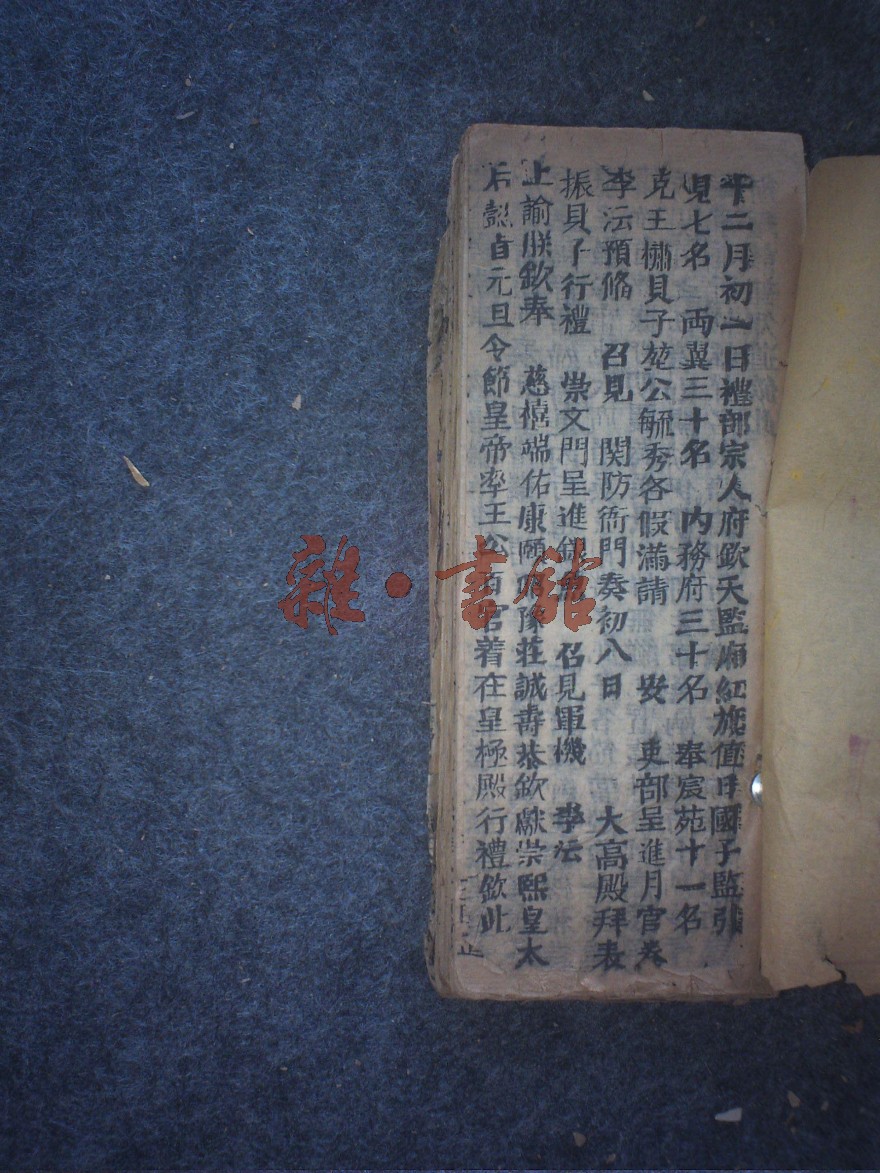 十二月初一日禮部宗人府欽天監廂紅旗值日國子監引
見七名 兩翼三十名 内務府三十名 奉宸苑十一名
克王櫹貝子 公毓秀各假滿請 安 吏部呈進月官卷
李沄預備 召見 関防衙門奏初八日 大高殿拜表
振貝子行禮 崇文門呈進 召見軍機 李沄
上諭朕欽奉 慈禧端佑康頤昭豫莊誠壽恭欽獻崇熙皇太
后懿旨元旦令節皇帝率王公百官着在皇極殿行禮欽此
雜·書館